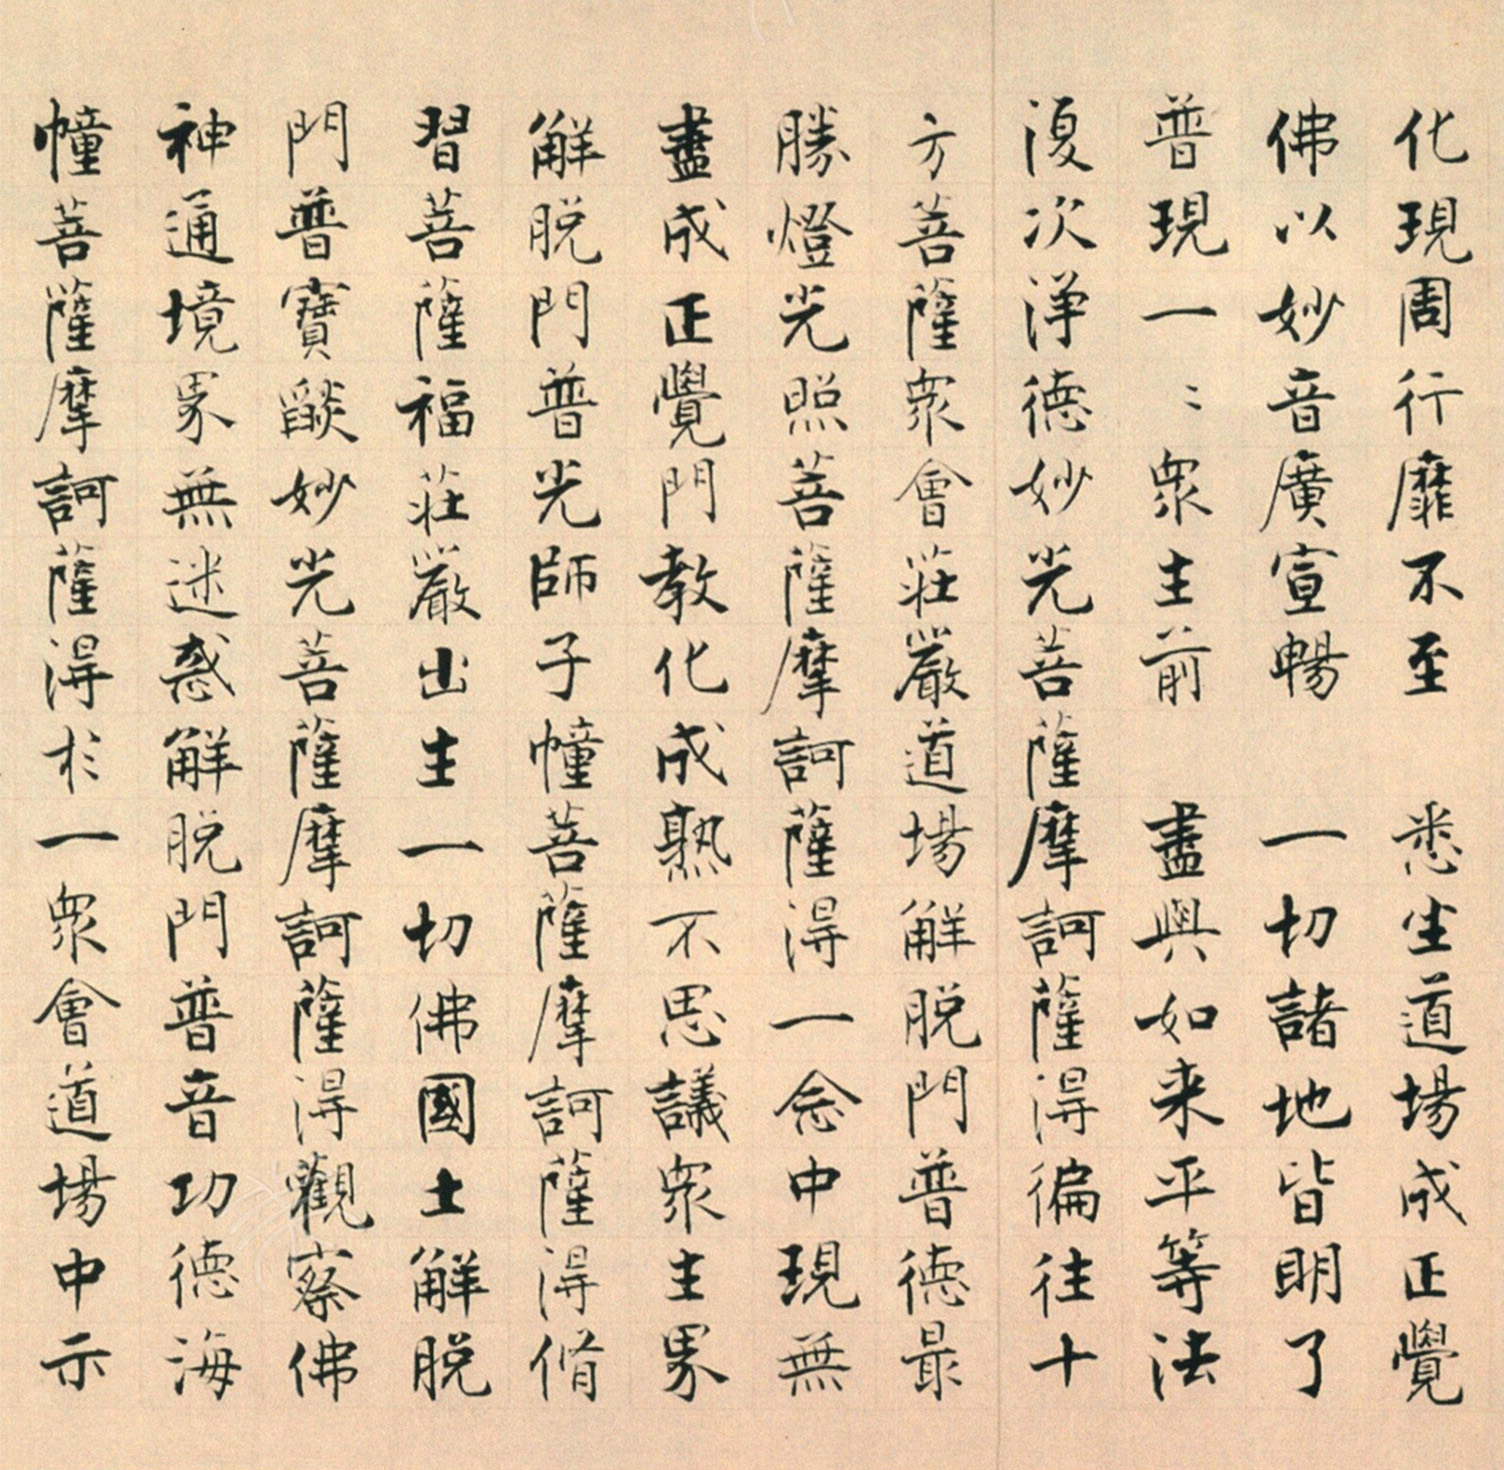 化現周行靡不至　悉坐道場成正覺
佛以妙音廣宣暢　一切諸地皆明了
普現一〻眾生前　盡與如来平等法
復次淨德妙光菩薩摩訶薩得徧往十
方菩薩眾會莊嚴道場解脫門普德最
勝燈光照菩薩摩訶薩得一念中現無
盡成正覺門教化成熟不思議眾生界
解脫門普光師子幢菩薩摩訶薩得脩
習菩薩福莊嚴出生一切佛國土解脫
門普寶燄妙光菩薩摩訶薩得觀察佛
神通境界無迷惑解脫門普音功德海
幢菩薩摩訶薩得於一眾會道場中示